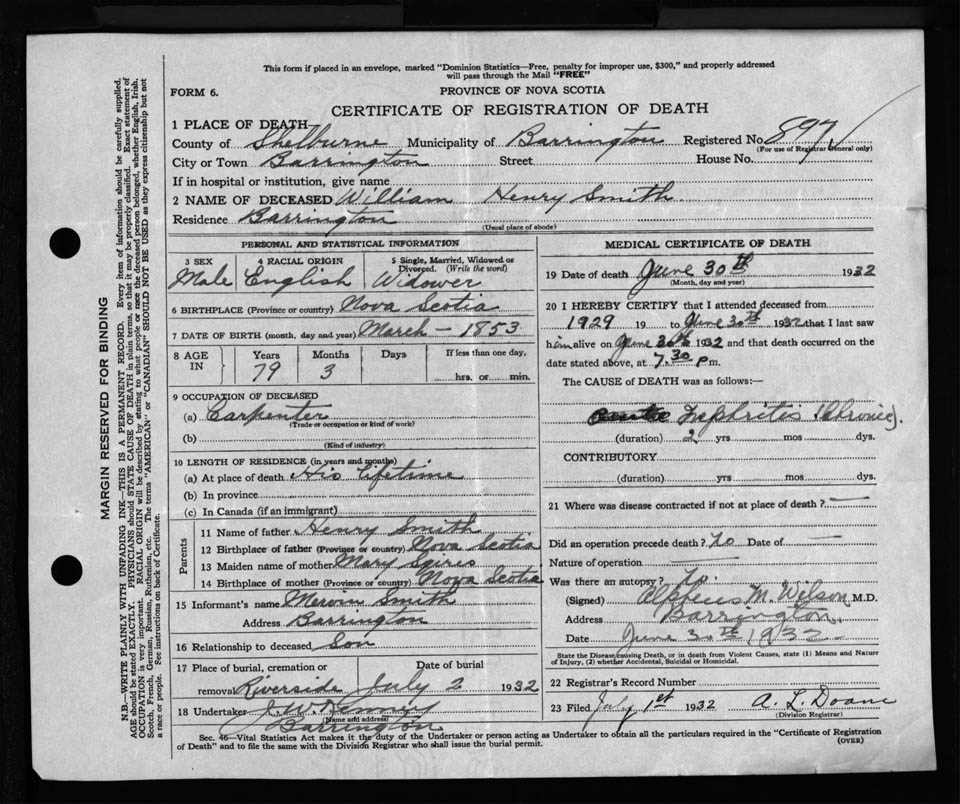 This form if placed in an envelope, marked "Dominion Statistics—Free, penalty for improper use, $300," and properly addressed
will pass through the Mail "FREE"
FORM 6.
PROVINCE OF NOVA SCOTIA
CERTIFICATE OF REGISTRATION OF DEATH
1 PLACE OF DEATH
County of Shelburne Municipality of Barrington Registered No 897
(For use of Registrar General only)
City or Town Barrington Street House No.
If in hospital or institution, give name
2 NAME OF DECEASED William Henry Smith
Residence Barrington
(Usual place of abode)
PERSONAL AND STATISTICAL INFORMATION
3 SEX 4 RACIAL ORIGIN 5 Single, Married, Widowed or Divorced. (Write the word)
Male English Widower
6 BIRTHPLACE (Province or country) Nova Scotia
7 DATE OF BIRTH (month, day and year) March — 1853
8 AGE IN Years Months Days If less than one day,
79 3 hrs. or min.
9 OCCUPATION OF DECEASED
(a) Carpenter
(Trade or occupation or kind of work)
(b)
(Kind of industry)
10 LENGTH OF RESIDENCE (in years and months)
(a) At place of death His lifetime
(b) In province
(c) In Canada (if an immigrant)
Parents
11 Name of father Henry Smith
12 Birthplace of father (Province or country) Nova Scotia
13 Maiden name of mother Mary
14 Birthplace of mother (Province or country) Nova Scotia
15 Informant's name Mervin Smith
Address Barrington
16 Relationship to deceased Son
17 Place of burial, cremation or removal Riverside Date of burial July 2 1932
18 Undertaker J. W.
(Name and address)
Barrington
MEDICAL CERTIFICATE OF DEATH
19 Date of death June 30th 1932
(Month, day and year)
20 I HEREBY CERTIFY that I attended deceased from
1929 19 to June 30th 1932 that I last saw
him alive on June 30th 1932 and that death occurred on the
date stated above, at 7.30 pm.
The CAUSE of DEATH was as follows:—
Nephritis (Chronic).
(duration) 2 yrs mos dys.
CONTRIBUTORY
(duration) yrs mos dys.
21 Where was disease contracted if not at place of death? —
Did an operation precede death? No Date of —
Nature of operation —
Was there an autopsy? No.
(Signed) M. Wilson M.D.
Address Barrington.
Date June 30th 1932
State the Disease causing Death, or in death from Violent Causes, state (1) Means and Nature
of Injury, (2) whether Accidental, Suicidal or Homicidal.
22 Registrar's Record Number
23 Filed July 1st 1932 A. L. Doane
(Division Registrar)
Sec. 45—Vital Statistics Act makes it the duty of the Undertaker or person acting as Undertaker to obtain all the particulars required in the "Certificate of Registration
of Death" and to file the same with the Division Registrar who shall issue the burial permit.
(OVER)
MARGIN RESERVED FOR BINDING
N.B.—WRITE PLAINLY WITH UNFADING INK—THIS IS A PERMANENT RECORD. Every item of information should be carefully supplied.
AGE should be stated EXACTLY. PHYSICIANS should STATE CAUSE OF DEATH in plain terms, so that it may be properly classified. Exact statement of
OCCUPATION is very important. RACIAL ORIGIN will be described by stating to what people or race the deceased person belonged, whether English, Irish,
Scotch, French, German, Russian, Ruthenian, etc. The terms "AMERICAN" or "CANADIAN" SHOULD NOT BE USED as they express citizenship but not
a race or people. See instructions on back of Certificate.